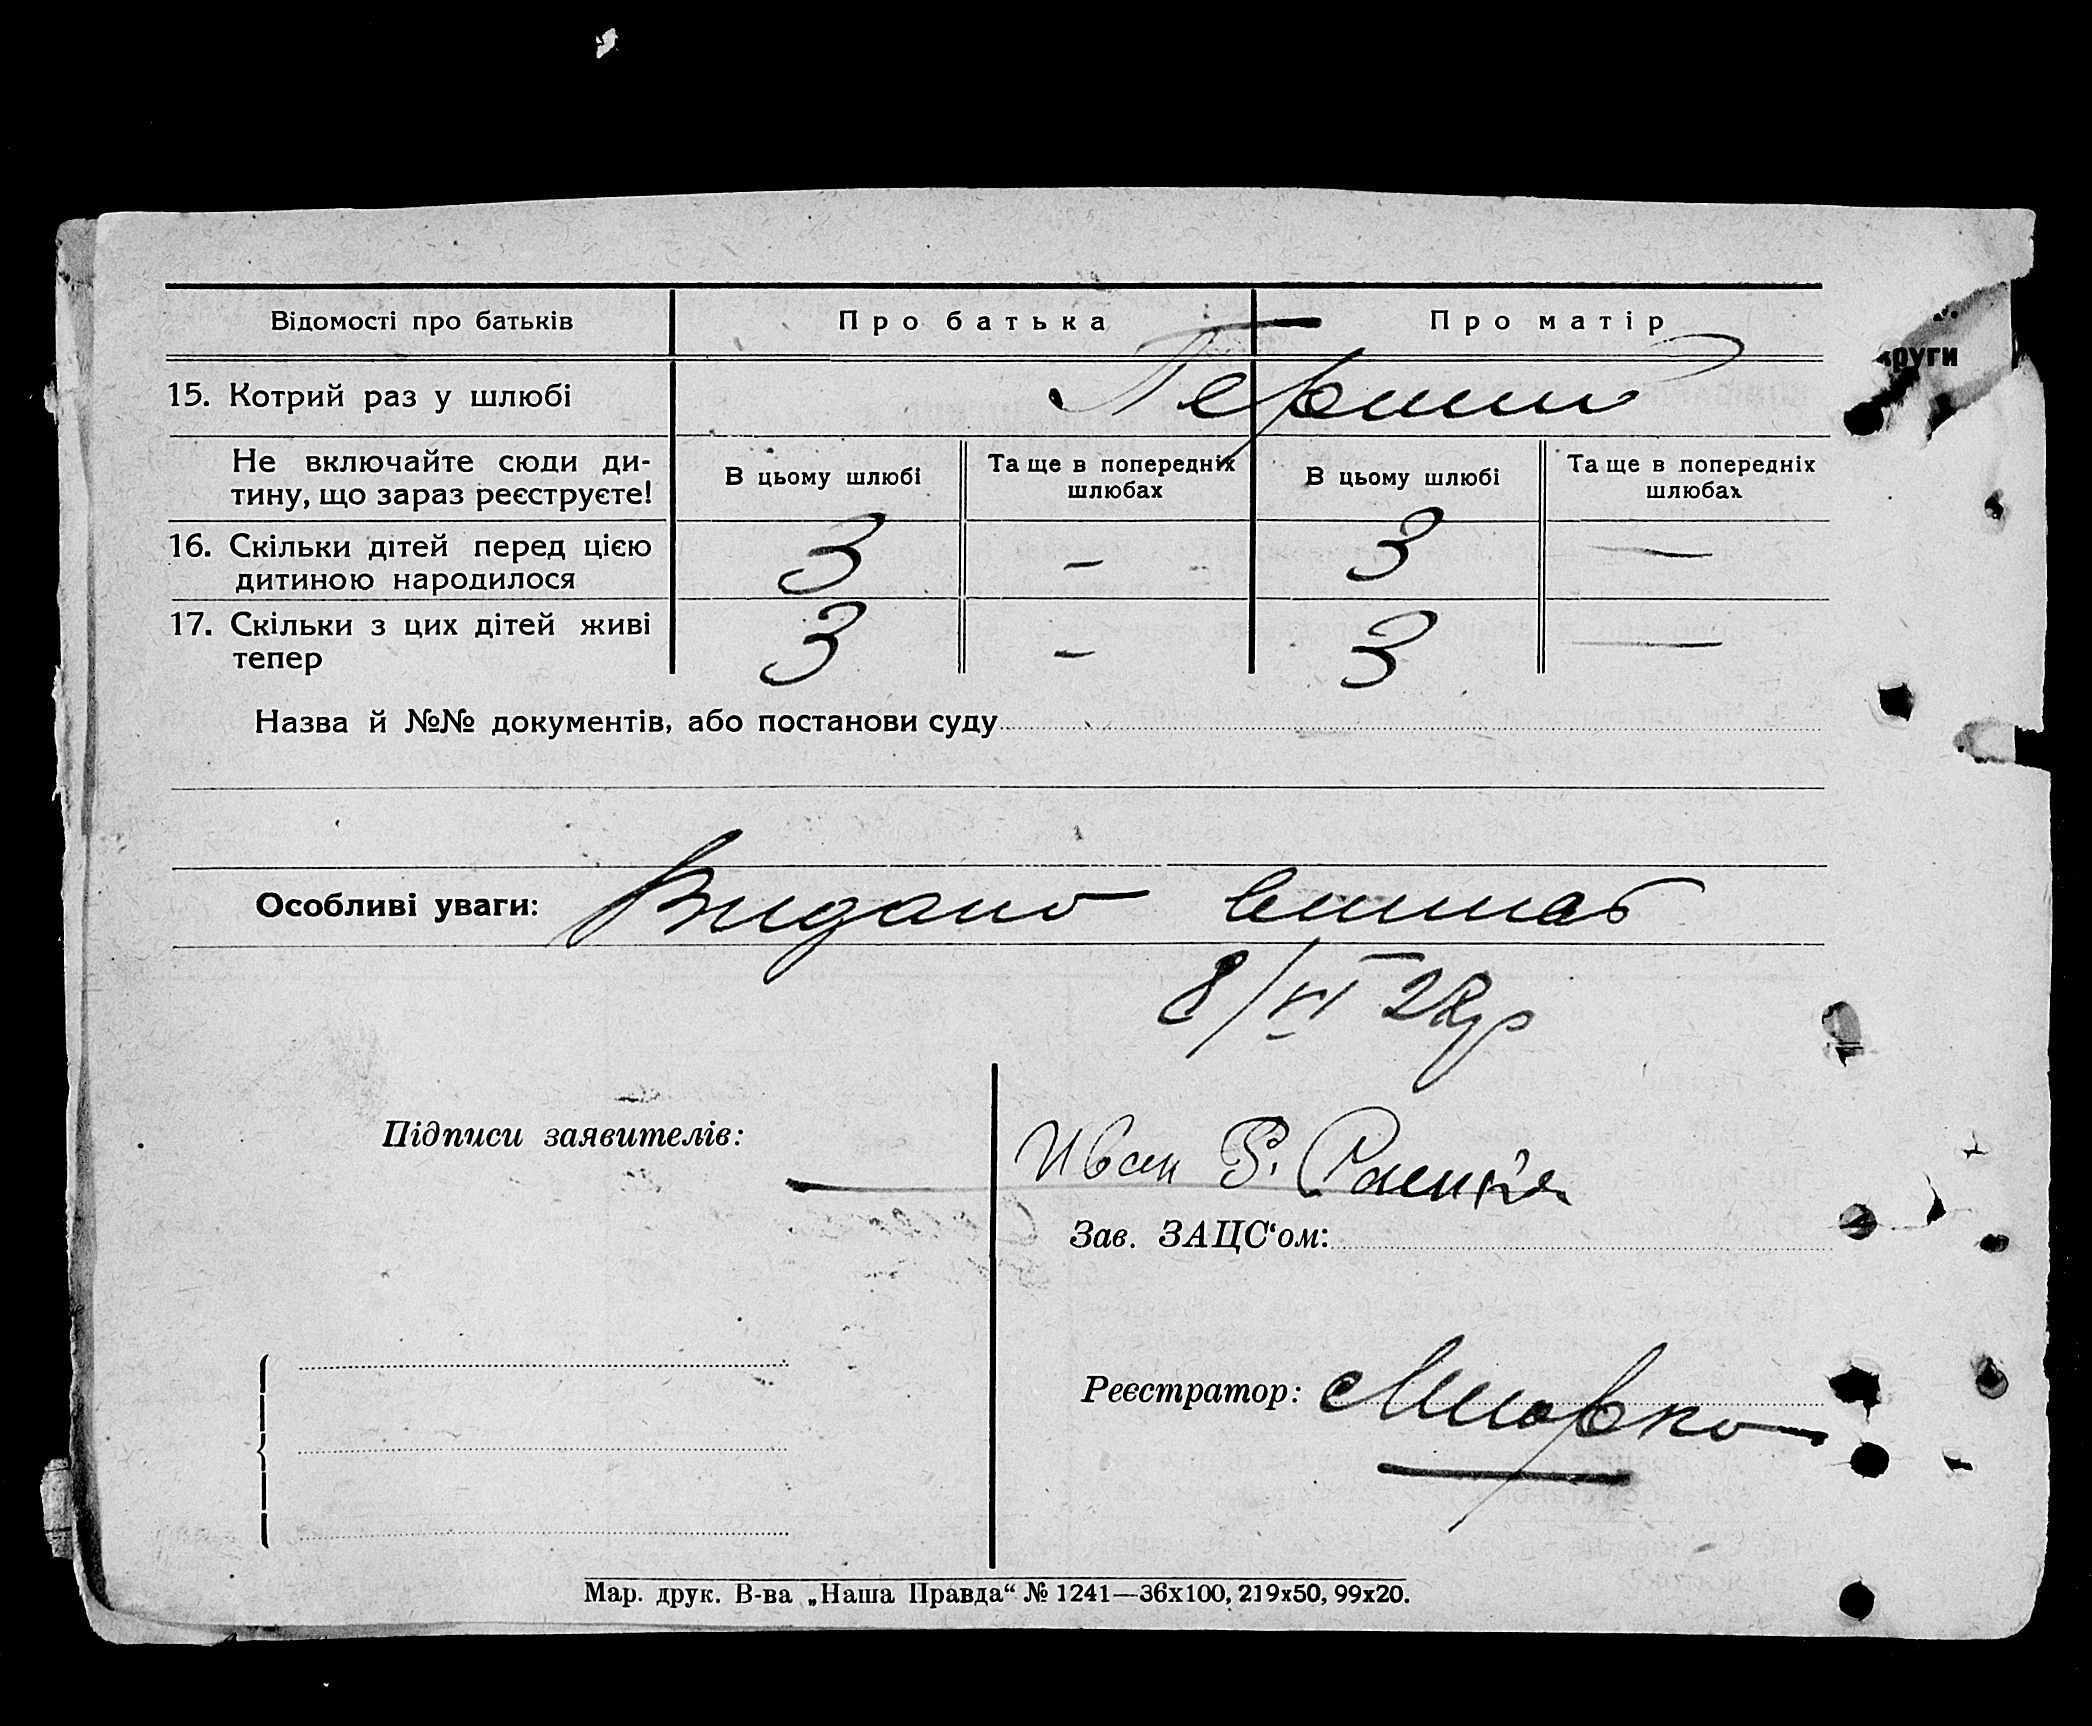 Відомості про батьків Про батька Про матір
руги
15. Котрий раз у шлюбі Перший
Не включайте сюди ди- В цьому шлюбі Та ще в попередніх В цьому шлюбі Та ще в попередніх
тину, що зараз реєструєте! шлюбах шлюбах
16. Скільки дітей перед цією 3 - 3 —
дитиною народилося
17. Скільки з цих дітей живі 3 - 3 —
тепер
Назва й №№ документів, або постанови суду
Особливі уваги: Видано
8/VI 28р
Підписи заявителів: Иван
Зав. ЗАЦС‘ом:
Реєстратор:
Мар. друк. В-ва „Наша Правда“ № 1241—36х100, 219х50, 99х20.